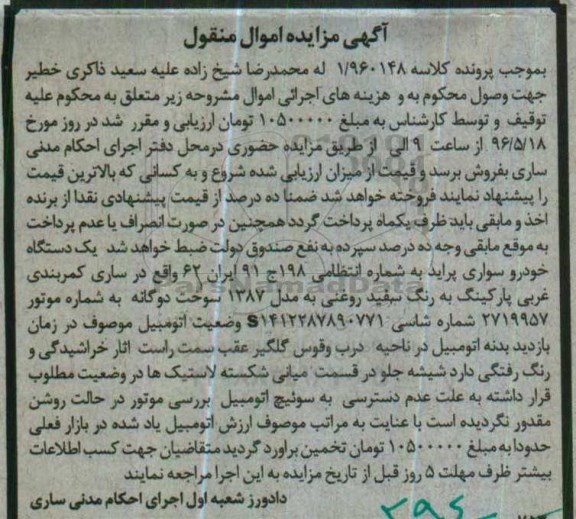 آگهی مزایده اموال منقول
بموجب پرونده کلاسه ۱/۹۶۰۱۴۸ له محمدرضا شیخ زاده علیه سعید ذاکری خطیر
جهت وصول محکوم به و هزینه های اجرائی اموال مشروحه زیر متعلق به محکوم علیه
توقیف و توسط کارشناس به مبلغ ۱۰۵۰۰۰۰۰ تومان ارزیابی و مقرر شد در روز مورخ
۹۶/۵/۱۸ از ساعت ۹ الی از طریق مزایده حضوری درمحل دفتر اجرای احکام مدنی
ساری بفروش برسد و قیمت از میزان ارزیابی شده شروع و به کسانی که بالاترین قیمت
را پیشنهاد نمایند فروخته خواهد شد ضمنا ده درصد از قیمت پیشنهادی نقدا از برنده
اخذ و مابقی باید ظرف یکماه پرداخت گردد همچنین در صورت انصراف یا عدم پرداخت
به موقع مابقی وجه ده درصد سپرده به نفع صندوق دولت ضبط خواهد شد یک دستگاه
خودرو سواری پراید به شماره انتظامی ۱۹۸ج ۹۱ ایران ۶۲ واقع در ساری کمربندی
غربی پارکینگ به رنگ سفید روغنی به مدل ۱۳۸۷ سوخت دوگانه به شماره موتور
۲۷۱۹۹۵۷ شماره شاسی S۱۴۱۲۲۸۷۸۹۰۷۷۱ وضعیت اتومبیل موصوف در زمان
بازدید بدنه اتومبیل در ناحیه درب وقوس گلگیر عقب سمت راست اثار خراشیدگی و
رنگ رفتگی دارد شیشه جلو در قسمت میانی شکسته لاستیک ها در وضعیت مطلوب
قرار داشته به علت عدم دسترسی به سوئیچ اتومبیل بررسی موتور در حالت روشن
مقدور نگردیده است با عنایت به مراتب موصوف ارزش اتومبیل یاد شده در بازار فعلی
حدودا به مبلغ ۱۰۵۰۰۰۰۰ تومان تخمین براورد گردید متقاضیان جهت کسب اطلاعات
بیشتر ظرف مهلت ۵ روز قبل از تاریخ مزایده به این اجرا مراجعه نمایند
دادورز شعبه اول اجرای احکام مدنی ساری